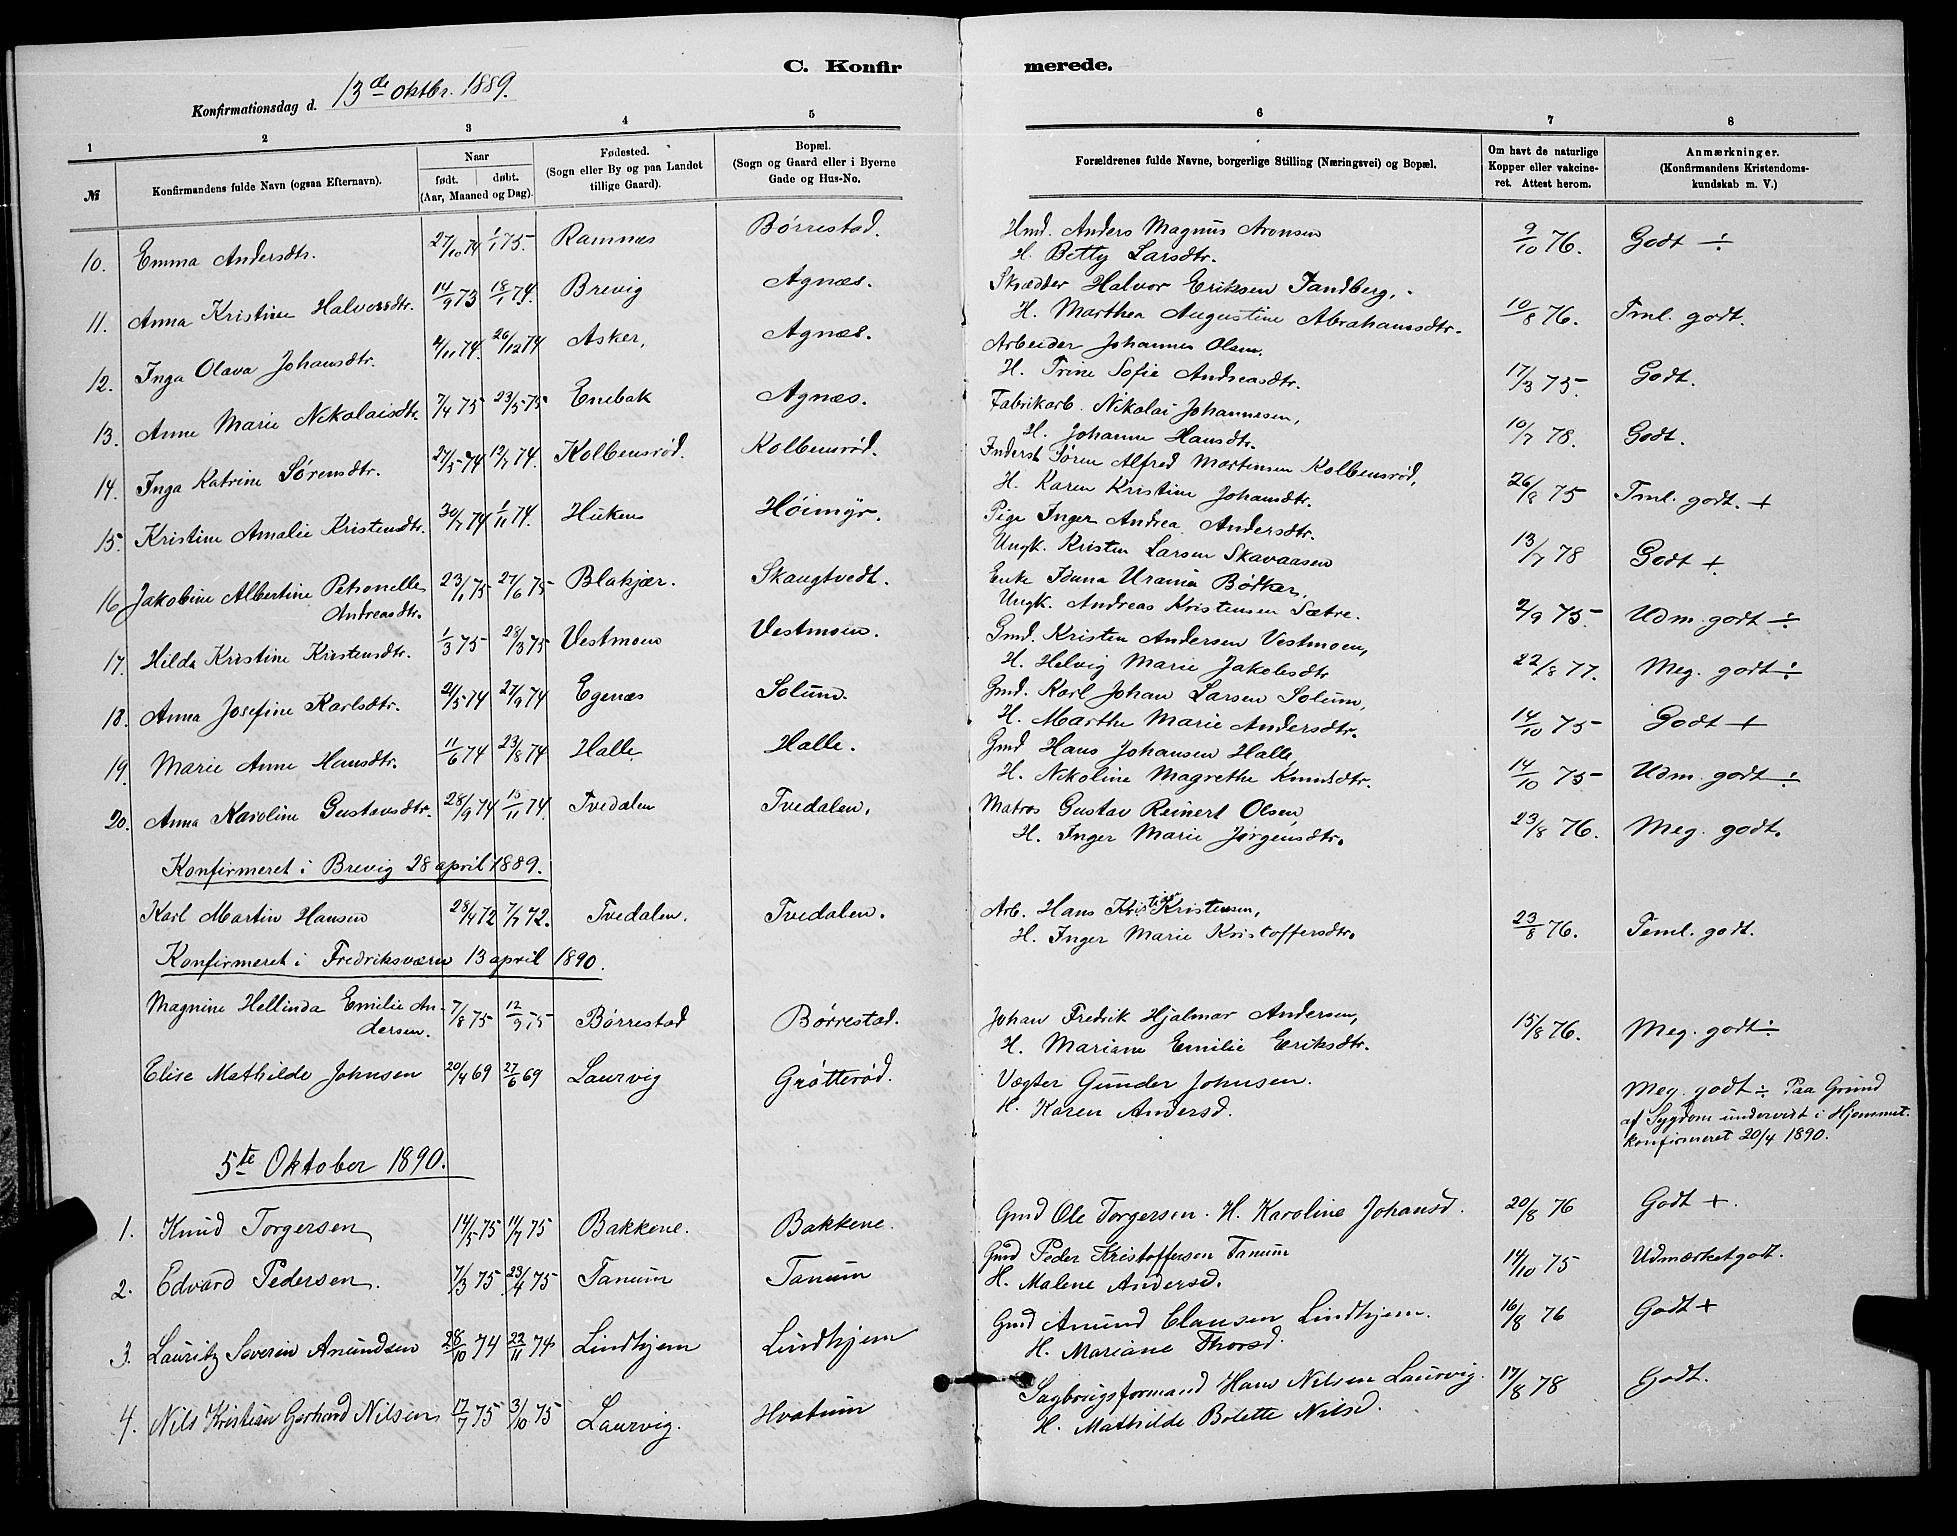 C. Konfirmerede.
Konfirmationsdag d. 13de Oktbr. 1889.
1 2 3 4 5 6 7 8
№ Konfirmandens fulde Navn (ogsaa Efternavn). Naar født. døbt. (Aar, Maaned og Dag). Fødested. (Sogn eller By og paa Landet tillige Gaard). Bopæl. (Sogn og Gaard eller i Byerne Gade og Hus-No. Forældrenes fulde Navne, borgerlige Stilling (Næringsvei) og Bopæl. Om havt de naturlige Kopper eller vakcineret. Attest herom. Anmærkninger. (Konfirmandens Kristendomskundskab m. V.)
10. Emma Andersdtr. 27/10 74 1/1 75. Ramnæs Børrestad. Hmd. Anders Magnus Aronsen 9/10 76. Godt ÷
H. Betty Larsdtr.
11. Anna Kristine Halvorsdtr. 14/9 73 18/1 74. Brevig Agnæs. Skrædder Halvor Eriksen Sandberg, 10/8 76. Tml. godt.
H. Marthea Augustine Abrahamsdtr.
12. Inga Olava Johansdtr. 4/11 74. 26/12 74 Asker, Agnæs. Arbeider Johannes Olsen. 17/3 75. Godt.
H. Trine Sofie Andreasdtr.
13. Anne Marie Nikolaisdtr. 7/4 75 23/5 75 Enebak Agnæs. Fabrikarb. Nikolai Johannesen, 10/7 78. Godt.
H. Johanne Hansdtr.
14. Inga Katrine Sørensdtr. 27/5 74 12/7 74. Kolbensrød. Kolbensrød. Inderst Søren Alfred Martinsen Kolbensrød, 26/8 75 Tml. godt. +
H. Karen Kristine Johansdtr.
15. Kristine Amalie Kristensdtr. 30/7 74 1/11 74. Huken Høimyr. Pige Inger Andrea Andersdtr. 13/7 78 Godt +.
Ungk. Kristen Larsen Skavaasen
16. Jakobine Albertine Petronelle Andreasdtr. 23/1 75 27/6 75 Blakjær. Skaugtvedt. Enke Idana Urania Bødker, 2/9 75. Udm. godt ÷
Ungk. Andreas Kristensen Sætre.
17. Hilda Kristine Kristensdtr. 1/3 75 28/3 75 Vestmoen Vestmoen. Gmd. Kristen Andersen Vestmoen, 22/8 77. Meg. godt ÷
H. Helvig Marie Jakobsdtr
18. Anna Josefine Karlsdtr. 21/5 74 27/9 74 Egenæs Solum. Gmd. Karl Johan Larsen Solum, 14/10 75 Godt +
H. Marthe Marie Andersdtr.
19. Marie Anne Hansdtr. 11/6 74 23/8 74 Halle Halle. Gmd Hans Johansen Halle, 14/10 75 Udm. godt ÷
H. Nikoline Magrethe Knudsdtr.
20. Anna Karoline Gustavsdtr. 28/9 74 15/11 74. Tvedalen Tvedalen. Matros Gustav Reinert Olsen, 23/8 76. Meg. godt.
H. Inger Marie Jørgensdtr.
Konfirmeret i Brevig 28 april 1889.
Karl Martin Hansen 28/4 72 7/7 72. Tvedalen. Tvedalen. Arb. Hans Kristensen, 23/8 76. Teml. godt.
H. Inger Marie Kristoffersdtr.
Konfirmeret i Fredriksværn 13 april 1890.
Magnine Hellinda Emilie Andersen. 7/8 75 12/9 75 Børrestad Børrestad. Johan Fredrik Hjalmar Andersen, 15/8 76. Meg. godt ÷
H. Mariane Emilie Eriksdtr.
Elise Mathilde Johnsen 20/4 69 27/6 69 Laurvig Grøtterød. Vægter Gunder Johnsen. Meg. godt ÷ Paa Grund
H. Karen Andersd. af Sygdom undervist i Hjemmet.
konfirmeret 20/4 1890.
5te Oktober 1890.
1. Knud Torgersen 14/5 75 11/7 75 Bakkene. Bakkene. Gmd Ole Torgersen. H. Karoline Johansd. 20/8 76 Godt +.
2. Edvard Pedersen. 7/3 75 23/4 75 Tanum Tanum Gmd Peder Kristoffersen Tanum 14/10 75 Udmærket godt.
H. Malene Andersd.
3. Lauritz Severin Amundsen 28/10 74 22/11 74 Lindhjem Lindhjem Gmd Amund Clausen Lindhjem. 16/8 76 Godt +
H. Mariane Thorsd.
4. Nils Kristian Gerhard Nilsen 17/7 75 3/10 75 Laurvig. Hvatum Sagbrugsformand Hans Nilsen Laurvig. 17/8 78 Godt.
H. Mathilde Bolette Nilsd.